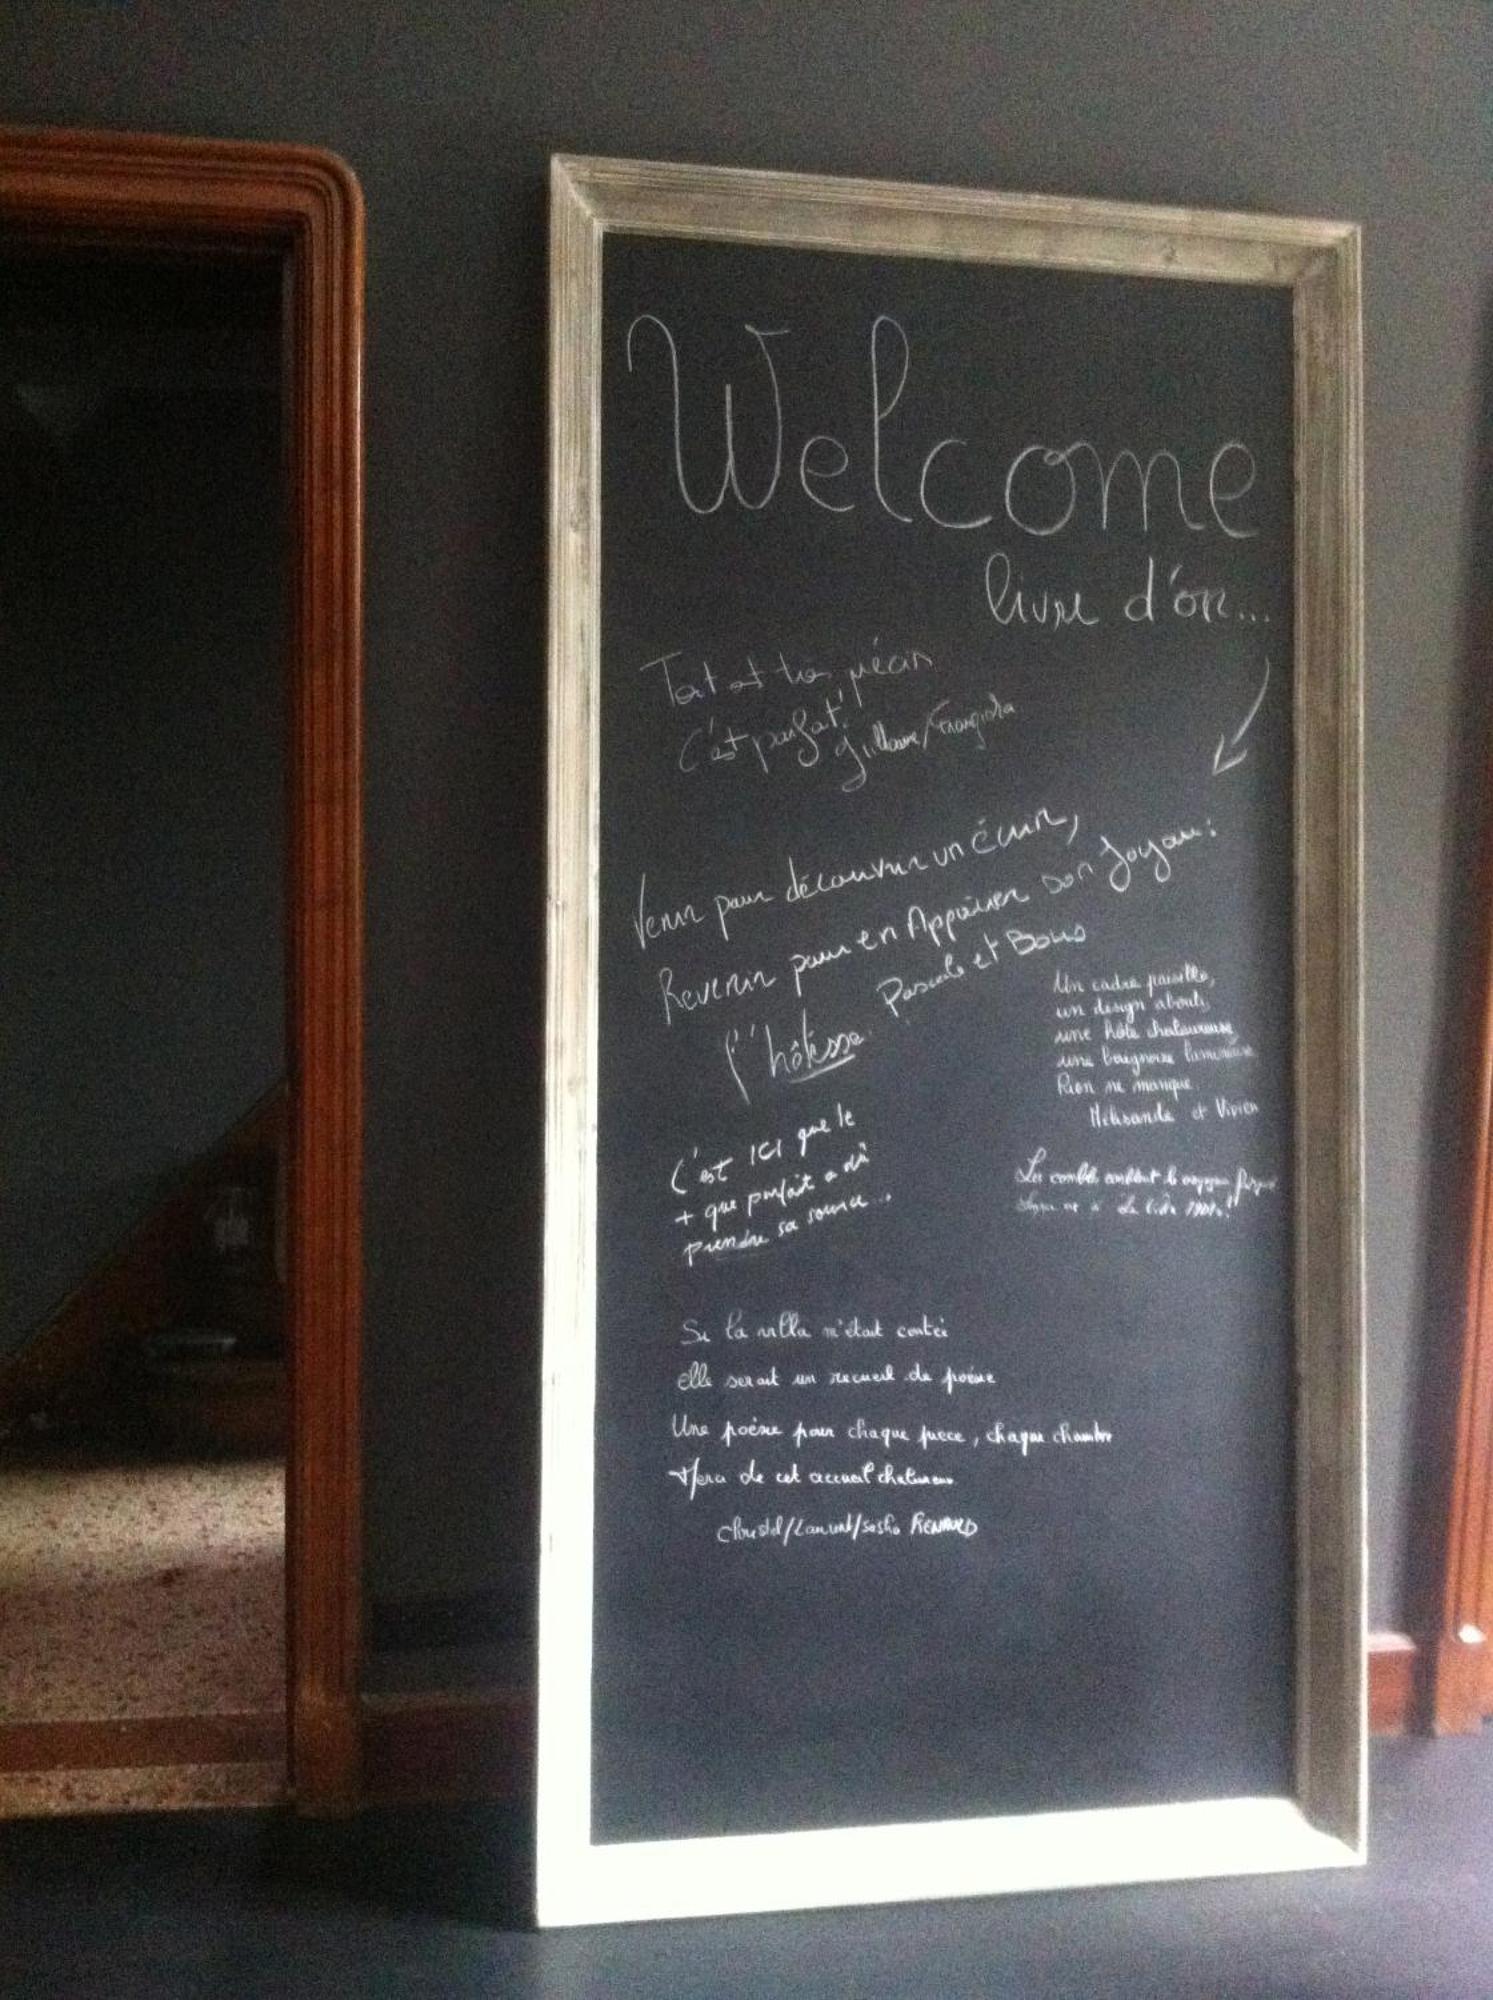 Welcome
livre d'or...
Tout est très précis
C'est parfait!
Venir pour découvrir un écrin,
Revenir pour en Apprécier son Joyau:
l'hôtesse. Pascale et Boris
Un cadre paisible,
un design abouti,
une hôte chaleureuse
une baignoire lumineuse
Rien ne manque.
Mélisande et Vivien
C'est ICI que le
+ que parfait a dû
prendre sa source...
Les combles
Si la villa m'était contée
elle serait un recueil de poème
Une poème pour chaque pièce, chaque chambre
Merci de cet accueil chaleureux
Christel/Laurent/Sasha RENAULD